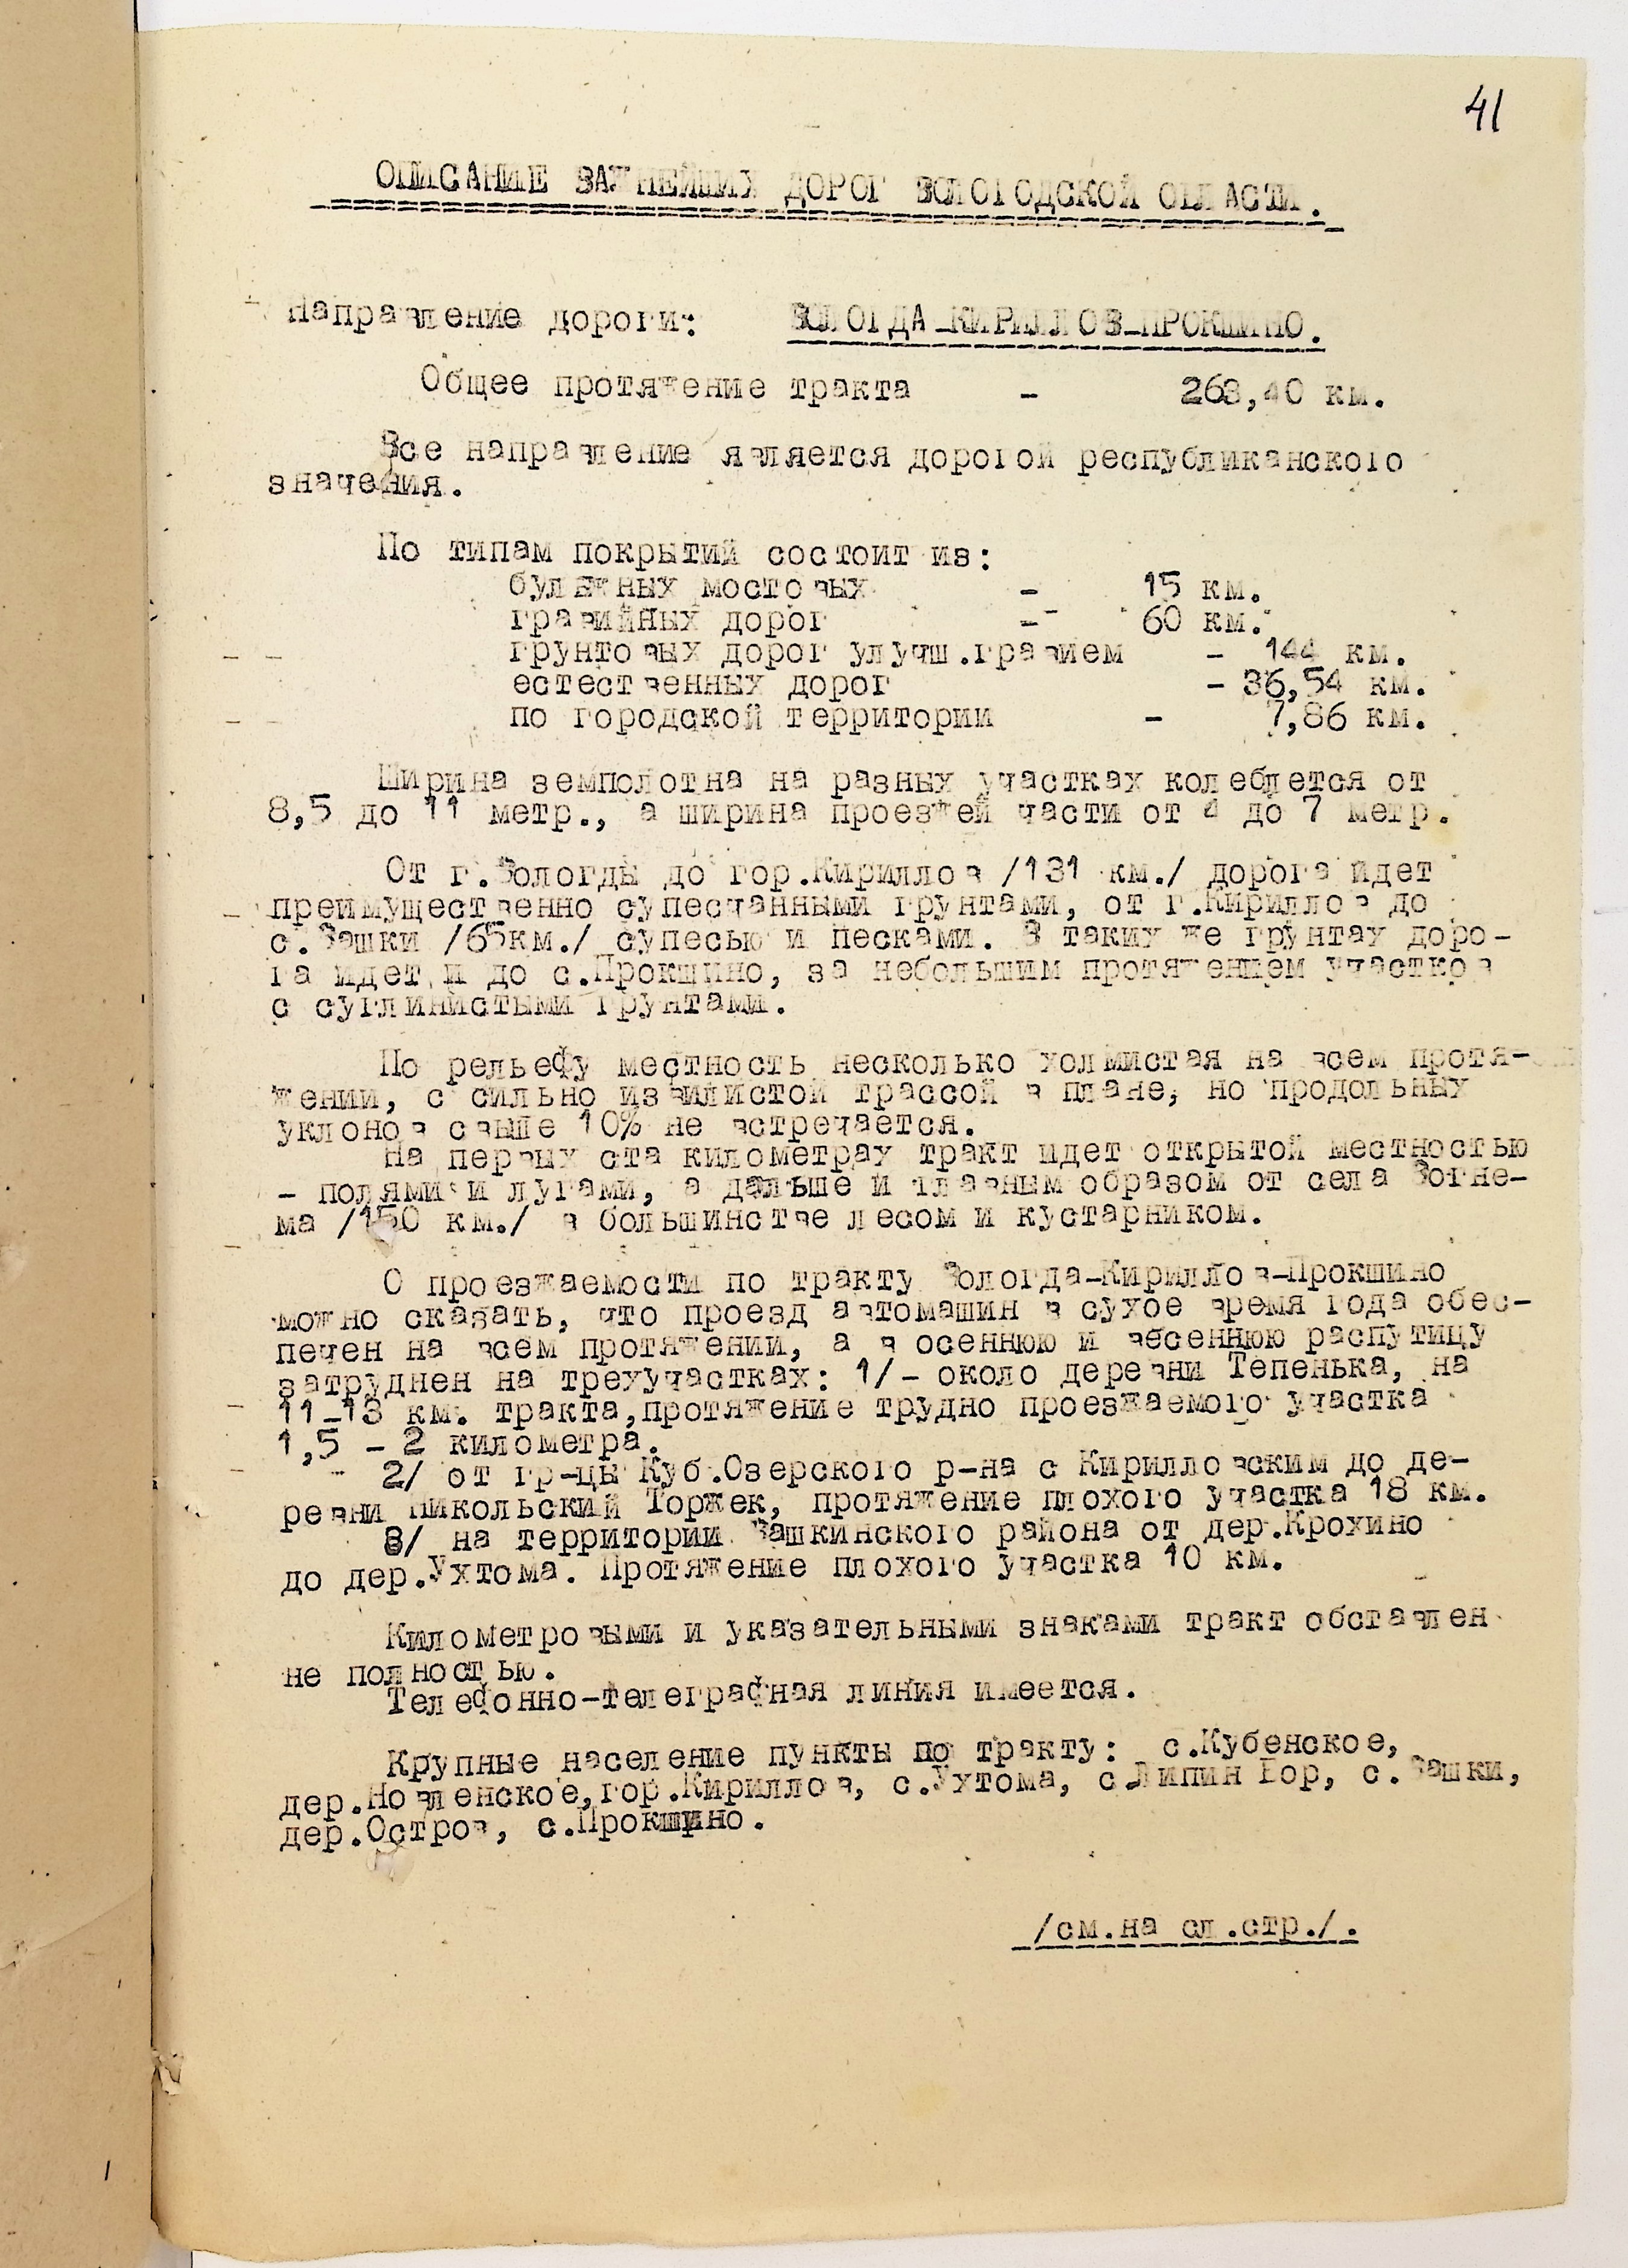 41
ОПИСАНИЕ ВАЖНЕЙШИХ ДОРОГ ВОЛОГОДСКОЙ ОБЛАСТИ.
Направление дороги: ВОЛОГДА-КИРИЛЛОВ-ПРОКШИНО.
Общее протяжение тракта - 263,40 км.
Все направление является дорогой республиканского
значения.
По типам покрытий состоит из:
булыжных мостовых - 15 км.
гравийных дорог - 60 км.
грунтовых дорог улучш.гравием - 144 км.
естественных дорог - 36,54 км.
по городской территории - 7,86 км.
Ширина земполотна на разных участках колеблется от
8,5 до 11 метр., а ширина проезжей части от 4 до 7 метр.
От г.Вологды до гор.Кириллов /131 км./ дорога идет
преимущественно супесчанными грунтами, от г.Кириллов до
с.Вашки /65км./ супесью и песками. В таких же грунтах доро-
га идет и до с.Прокшино, за небольшим протяжением участков
с суглинистыми грунтами.
По рельефу местность несколько холмистая на всем протя-
жении, с сильно извилистой трассой в плане, но продольных
уклонов свыше 10% не встречается.
На первых ста километрах тракт идет открытой местностью
- полями и лугами, а дальше и главным образом от села Вогне-
ма /150 км./ в большинстве лесом и кустарником.
О проезжаемости по тракту Вологда-Кириллов-Прокшино
можно сказать, что проезд автомашин в сухое время года обес-
печен на всем протяжении, а в осеннюю и весеннюю распутицу
затруднен на трехучастках: 1/- около деревни Тепенька, на
11-13 км. тракта,протяжение трудно проезжаемого участка
1,5 - 2 километра.
2/ от гр-цы Куб.Озерского р-на с Кирилловским до де-
ревни Никольский Торжек, протяжение плохого участка 18 км.
3/ на территории Вашкинского района от дер.Крохино
до дер.Ухтома. Протяжение плохого участка 10 км.
Километровыми и указательными знаками тракт обставлен
не полностью.
Телефонно-телеграфная линия имеется.
Крупные население пункты по тракту: с.Кубенское,
дер.Новленское,гор.Кириллов, с.Ухтома, с.Липин Бор, с.Вашки,
дер.Остров, с.Прокшино.
/см.на сл.стр./.